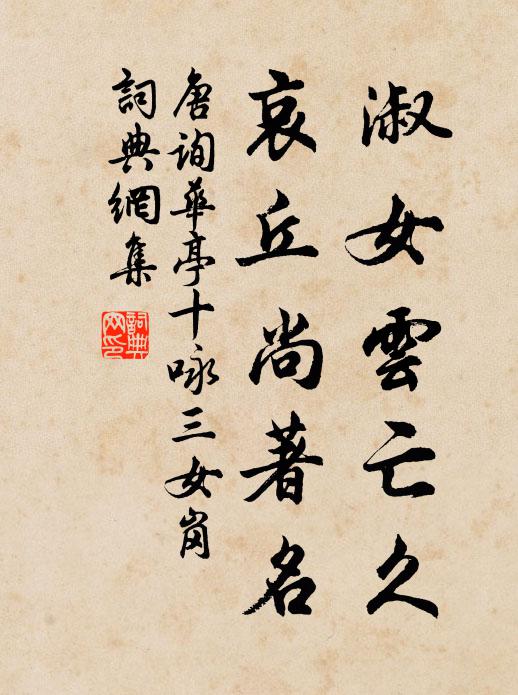 淑女雲亡久
哀丘尚著名
唐詢華亭十咏三女崗
詞典網集